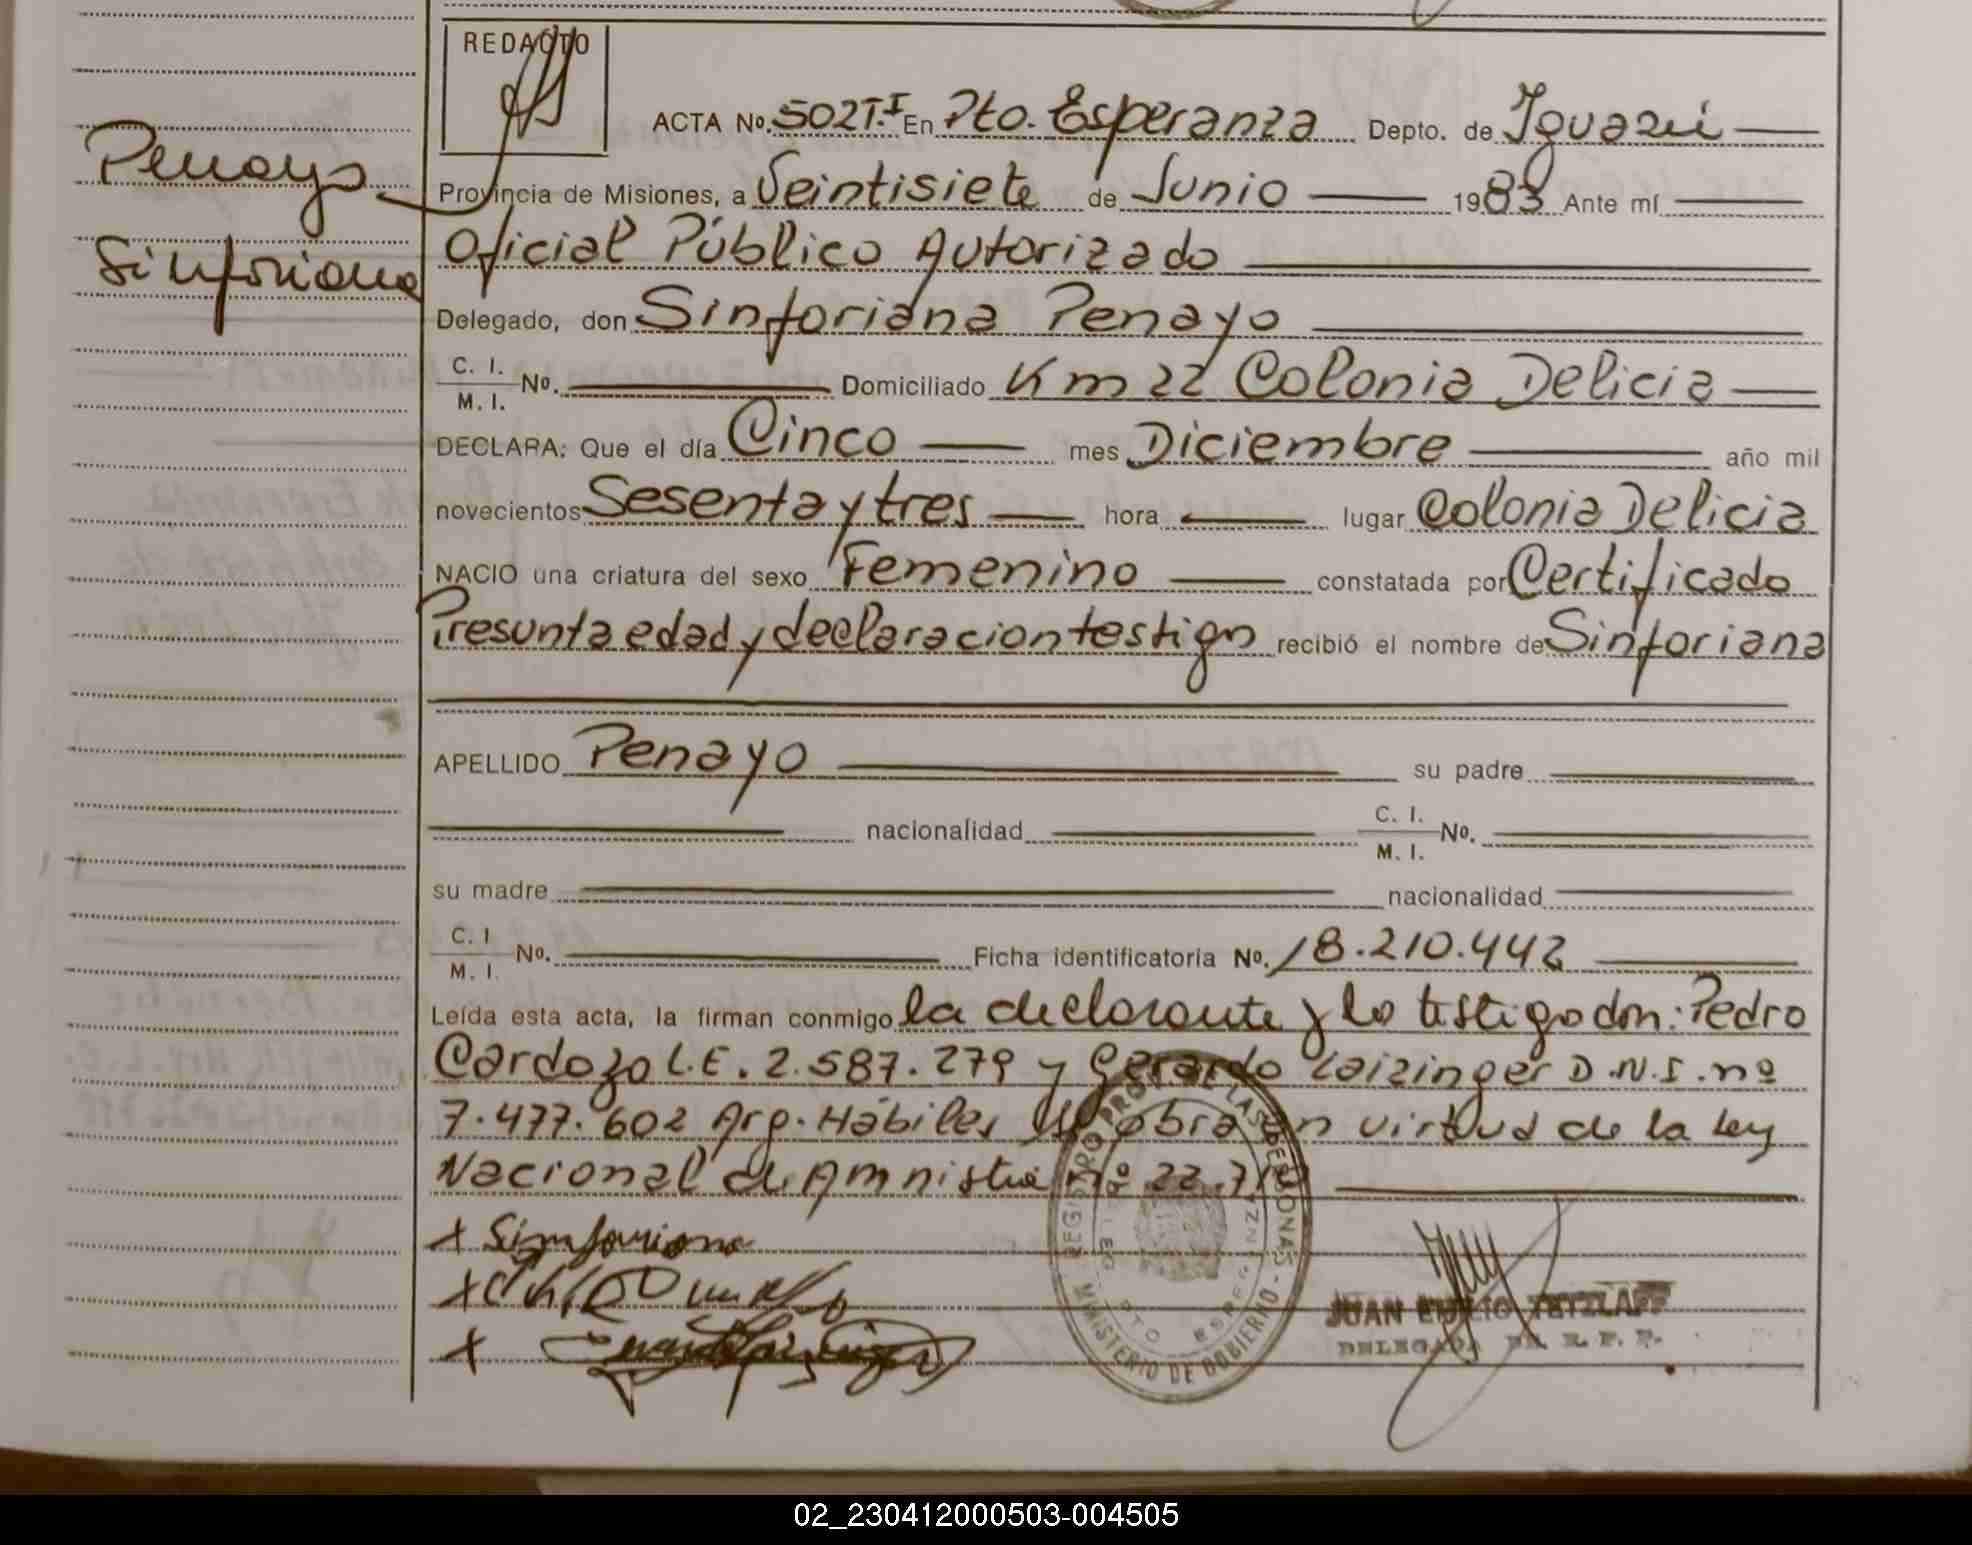 REDACTO
ACTA No. 502T.I En Pto. Esperanza Depto. de Iguazú
Penayo
Provincia de Misiones, a Veintisiete de Junio 1983 Ante mí
Sinforiana
Oficial Público Autorizado
Delegado, don Sinforiana Penayo
C. I. / M. I. No. Domiciliado Km 22 Colonia Delicia
DECLARA: Que el día Cinco mes Diciembre año mil
novecientos Sesenta y tres hora lugar Colonia Delicia
NACIO una criatura del sexo Femenino constatada por Certificado
Presunta edad y declaracion testigo recibió el nombre de Sinforiana
APELLIDO Penayo su padre
nacionalidad C. I. / M. I. No.
su madre nacionalidad
C. I / M. I. No. Ficha identificatoria No. 18.210.442
Leída esta acta, la firman conmigo la declarante y lo testigo don: Pedro
Cardozo L.E. 2.587.279 y Gerardo Laizinger D.N.I. nº
7.477.602 Arg. Hábiles se obra en virtud de la Ley
Nacional de Amnistia nº 22.
x Sinforiana
x
x
REGISTRO PROV. DE LAS PERSONAS - MINISTERIO DE GOBIERNO
PTO ESPERANZA
JUAN EMILIO TETZLAFF
DELEGADO DE R. P. P.
02_230412000503-004505